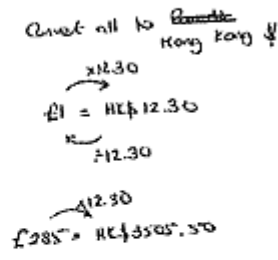 Convert all to ~~Pounds~~
Hong Kong $
×12.30
£1 = HK$12.30
÷12.30
×12.30
£285 = HK$3505.50